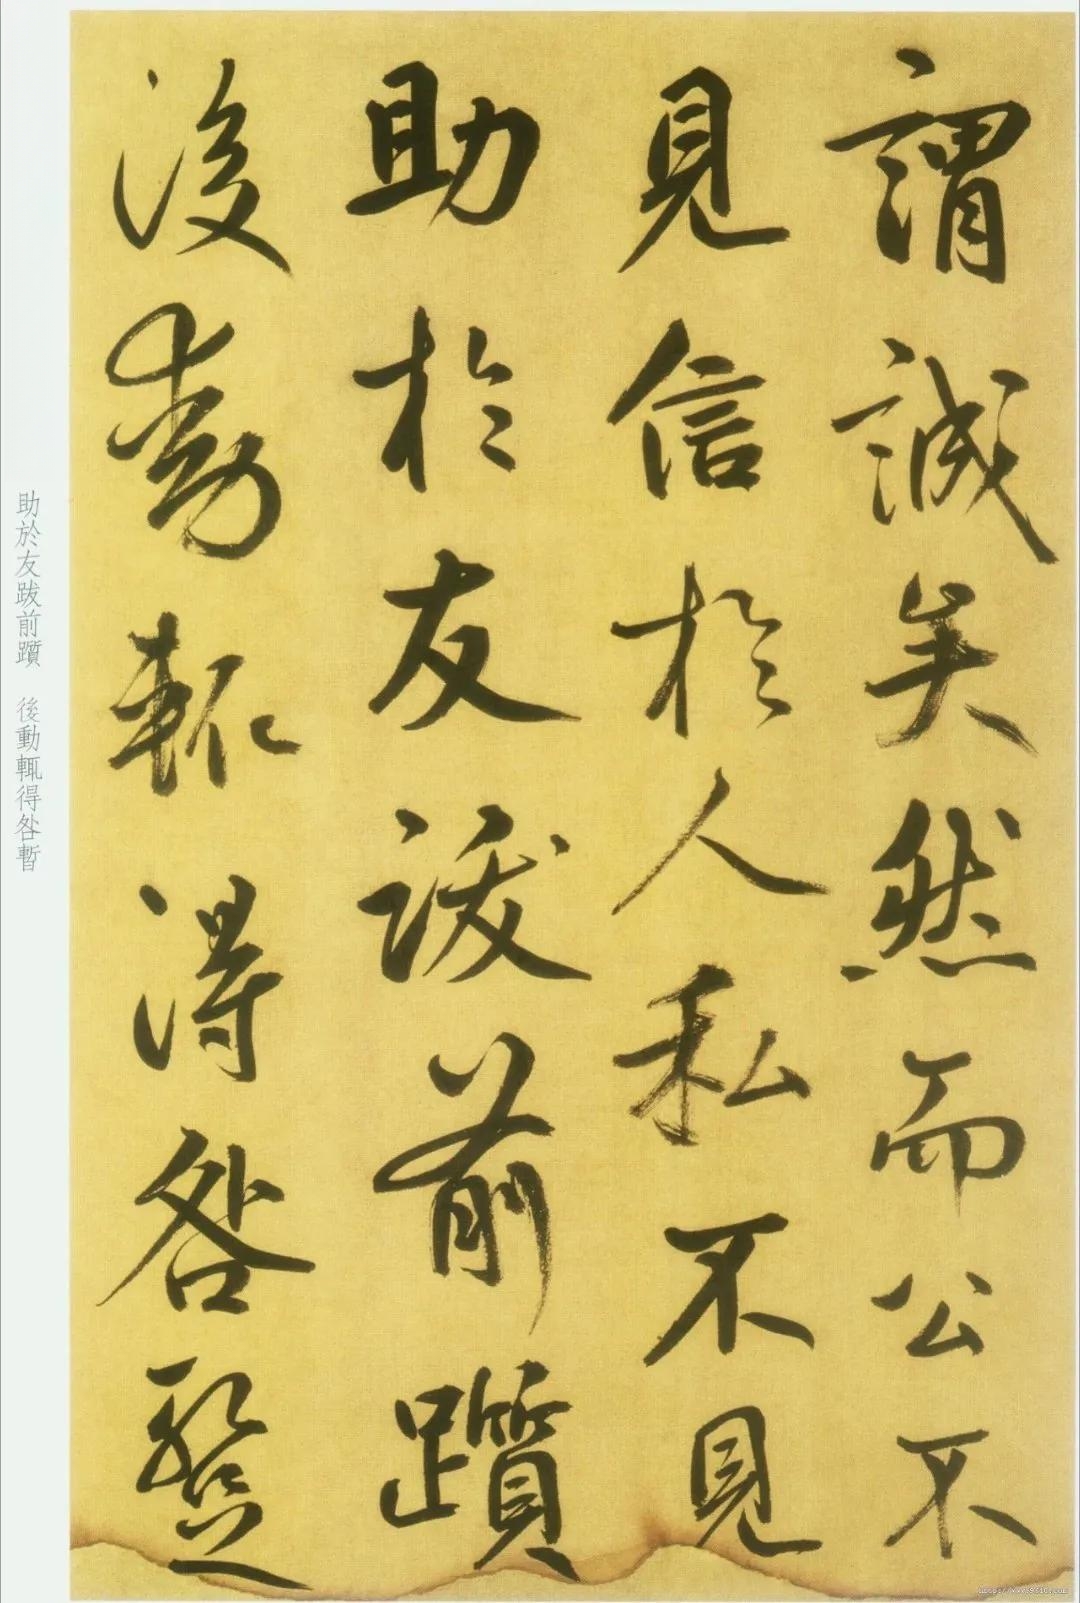 謂誠矣然而公不
見信於人私不見
助於友跋前躓
後動輒得咎暫
助於友跋前躓 後動輒得咎暫